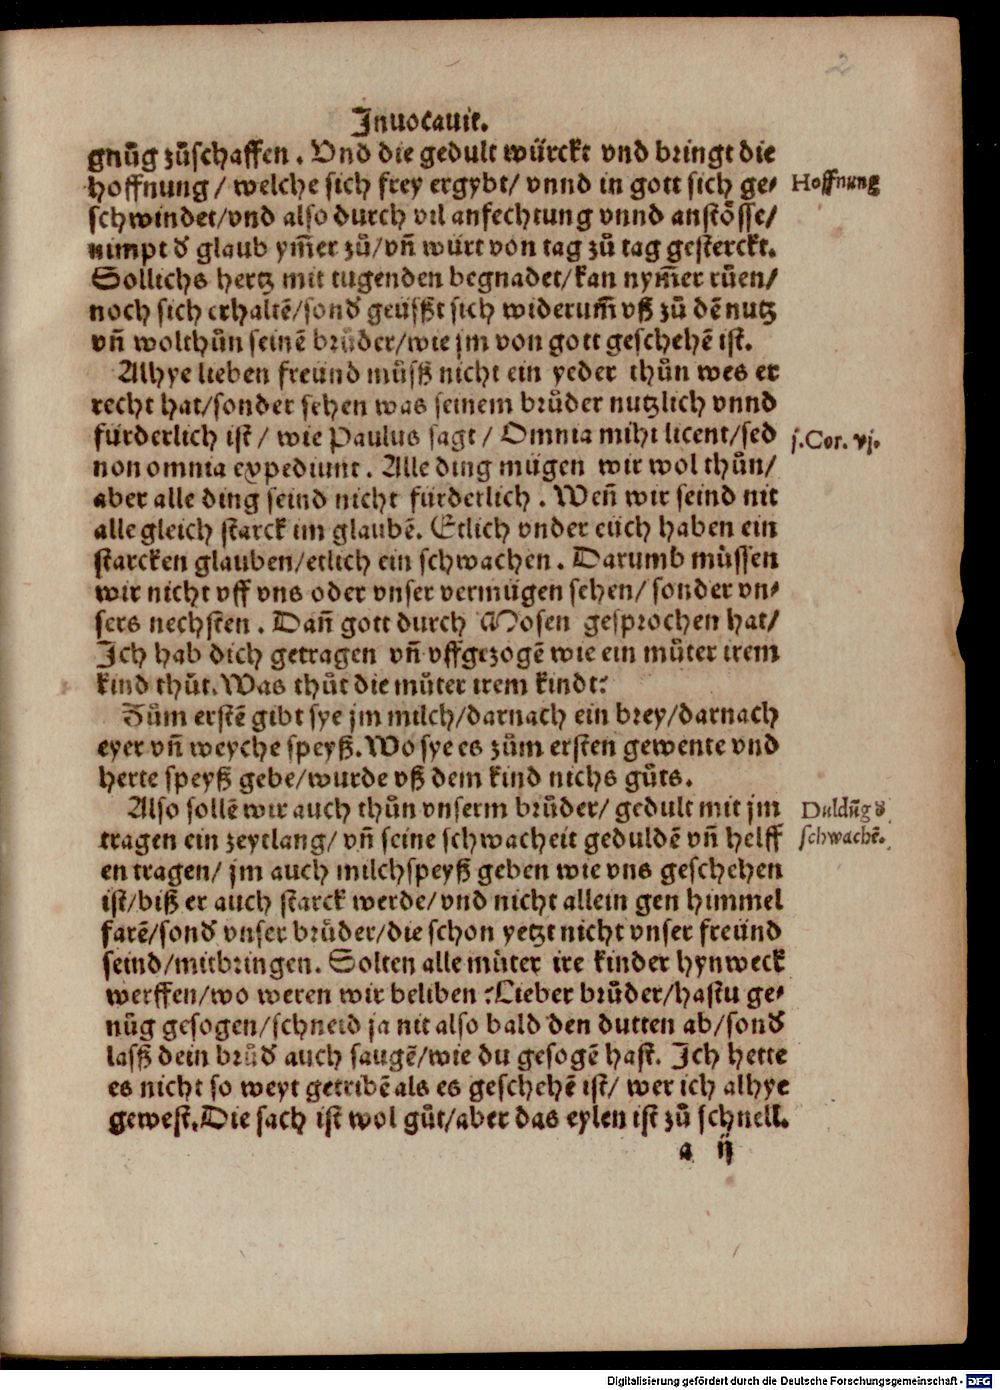 2
Inuocauit.
gnůg zůschaffen. Vnd die gedult würckt vnd bringt die
hoffnung / welche sich frey ergybt/ vnnd in gott sich ge⸗
Hoffnung
schwindet/vnd also durch vil anfechtung vnnd anstösse/
nimpt d̕ glaub ym̃er zů/vñ würt von tag zů tag gesterckt.
Sollichs hertz mit tugenden begnadet/kan nym̃er růen/
noch sich erhaltẽ/sond̕ geüßt sich widerum̃ vß zů dẽ nutz
vñ wolthůn seinẽ brůder/wie jm von gott geschehẽ ist.
Alhye lieben freünd můß nicht ein yeder thůn wes er
recht hat/sonder sehen was seinem brůder nutzlich vnnd
fürderlich ist / wie Paulus sagt / Omnia mihi licent/sed
j.Cor. vj.
non omnia expediunt. Alle ding mügen wir wol thůn/
aber alle ding seind nicht fürderlich. Weñ wir seind nit
alle gleich starck im glaubẽ. Etlich vnder eüch haben ein
starcken glauben/etlich ein schwachen. Darumb müssen
wir nicht vff vns oder vnser vermügen sehen/ sonder vn⸗
sers nechsten. Dañ gott durch Mosen gesprochen hat/
Ich hab dich getragen vñ vffgezogẽ wie ein můter irem
kind thůt. Was thůt die můter irem kindt?
Zům erstẽ gibt sye jm milch/darnach ein brey/darnach
eyer vñ weyche speyß. Wo sye es zům ersten gewente vnd
herte speyß gebe/wurde vß dem kind nichs gůts.
Also sollẽ wir auch thůn vnserm brůder/ gedult mit jm
Duldũg d̕
tragen ein zeytlang/ vñ seine schwacheit geduldẽ vñ helff
schwachẽ.
en tragen/ jm auch milchspeyß geben wie vns geschehen
ist/biß er auch starck werde/vnd nicht allein gen himmel
farẽ/sond̕ vnser brůder/die schon yetzt nicht vnser freünd
seind/mitbringen. Solten alle můter ire kinder hynweck
werffen/wo weren wir beliben? Lieber brůder/hastu ge⸗
nůg gesogen/schneid ja nit also bald den dutten ab/sond̕
laß dein brůd̕ auch saugẽ/wie du gesogẽ hast. Ich hette
es nicht so weyt getribẽ als es geschehẽ ist/ wer ich alhye
gewest. Die sach ist wol gůt/aber das eylen ist zů schnell.
a ij
Digitalisierung gefördert durch die Deutsche Forschungsgemeinschaft - DFG